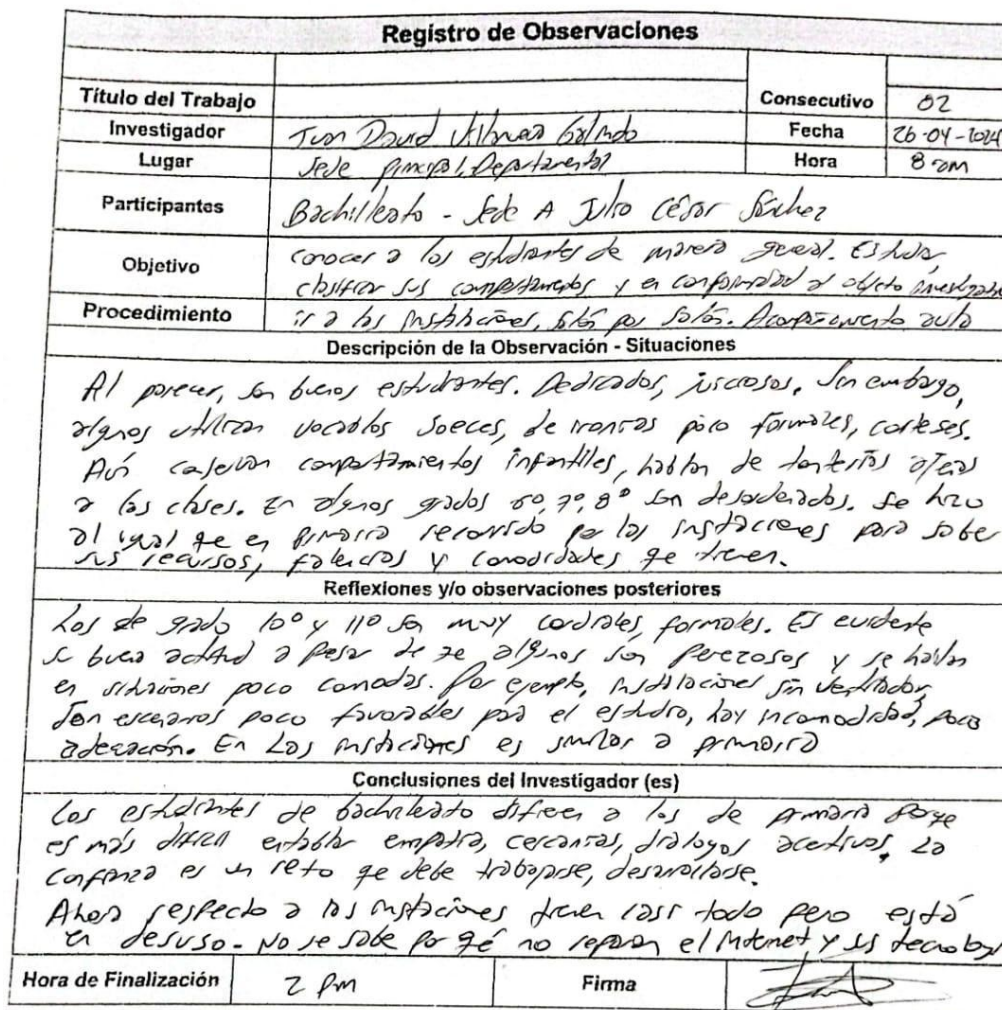 Registro de Observaciones
Título del Trabajo
Consecutivo 02
Investigador Juan David Galindo
Fecha 26-04-2024
Lugar Sede principal, Departamental
Hora 8 am
Participantes Bachillerato - Sede A Julio César Sánchez
Objetivo conocer a los estudiantes de manera general. Estudiar,
clasificar sus comportamientos y en conformidad al objeto investigado
Procedimiento ir a las instalaciones, salón por salón. Acompañamiento aula
Descripción de la Observación - Situaciones
Al parecer, son buenos estudiantes. Dedicados, juiciosos. Sin embargo,
algunos utilizan vocablos soeces, de poco formales, corteses.
Aún conservan comportamientos infantiles, hablan de tonterías ajenas
a las clases. En algunos grados 6º, 7º, 8º son desordenados. Se hizo
al igual que en primaria recorrido por las instalaciones para saber
sus recursos, falencias y comodidades que tienen.
Reflexiones y/o observaciones posteriores
Los de grado 10º y 11º son muy cordiales, formales. Es evidente
su buena actitud a pesar de que algunos son perezosos y se hallan
en situaciones poco comodas. Por ejemplo, instalaciones sin ventilador,
son escenarios poco favorables para el estudio, hay incomodidad, poca
adecuación. En Las instalaciones es similar a primaria
Conclusiones del Investigador (es)
Los estudiantes de bachillerato difieren a los de primaria porque
es más difícil entablar empatía, cercanías, diálogos asertivos. La
confianza es un reto que debe trabajarse, desarrollarse.
Ahora respecto a las instalaciones tienen casi todo pero está
en desuso. No se sabe por qué no reparan el internet y sus tecnologías
Hora de Finalización 2 pm
Firma